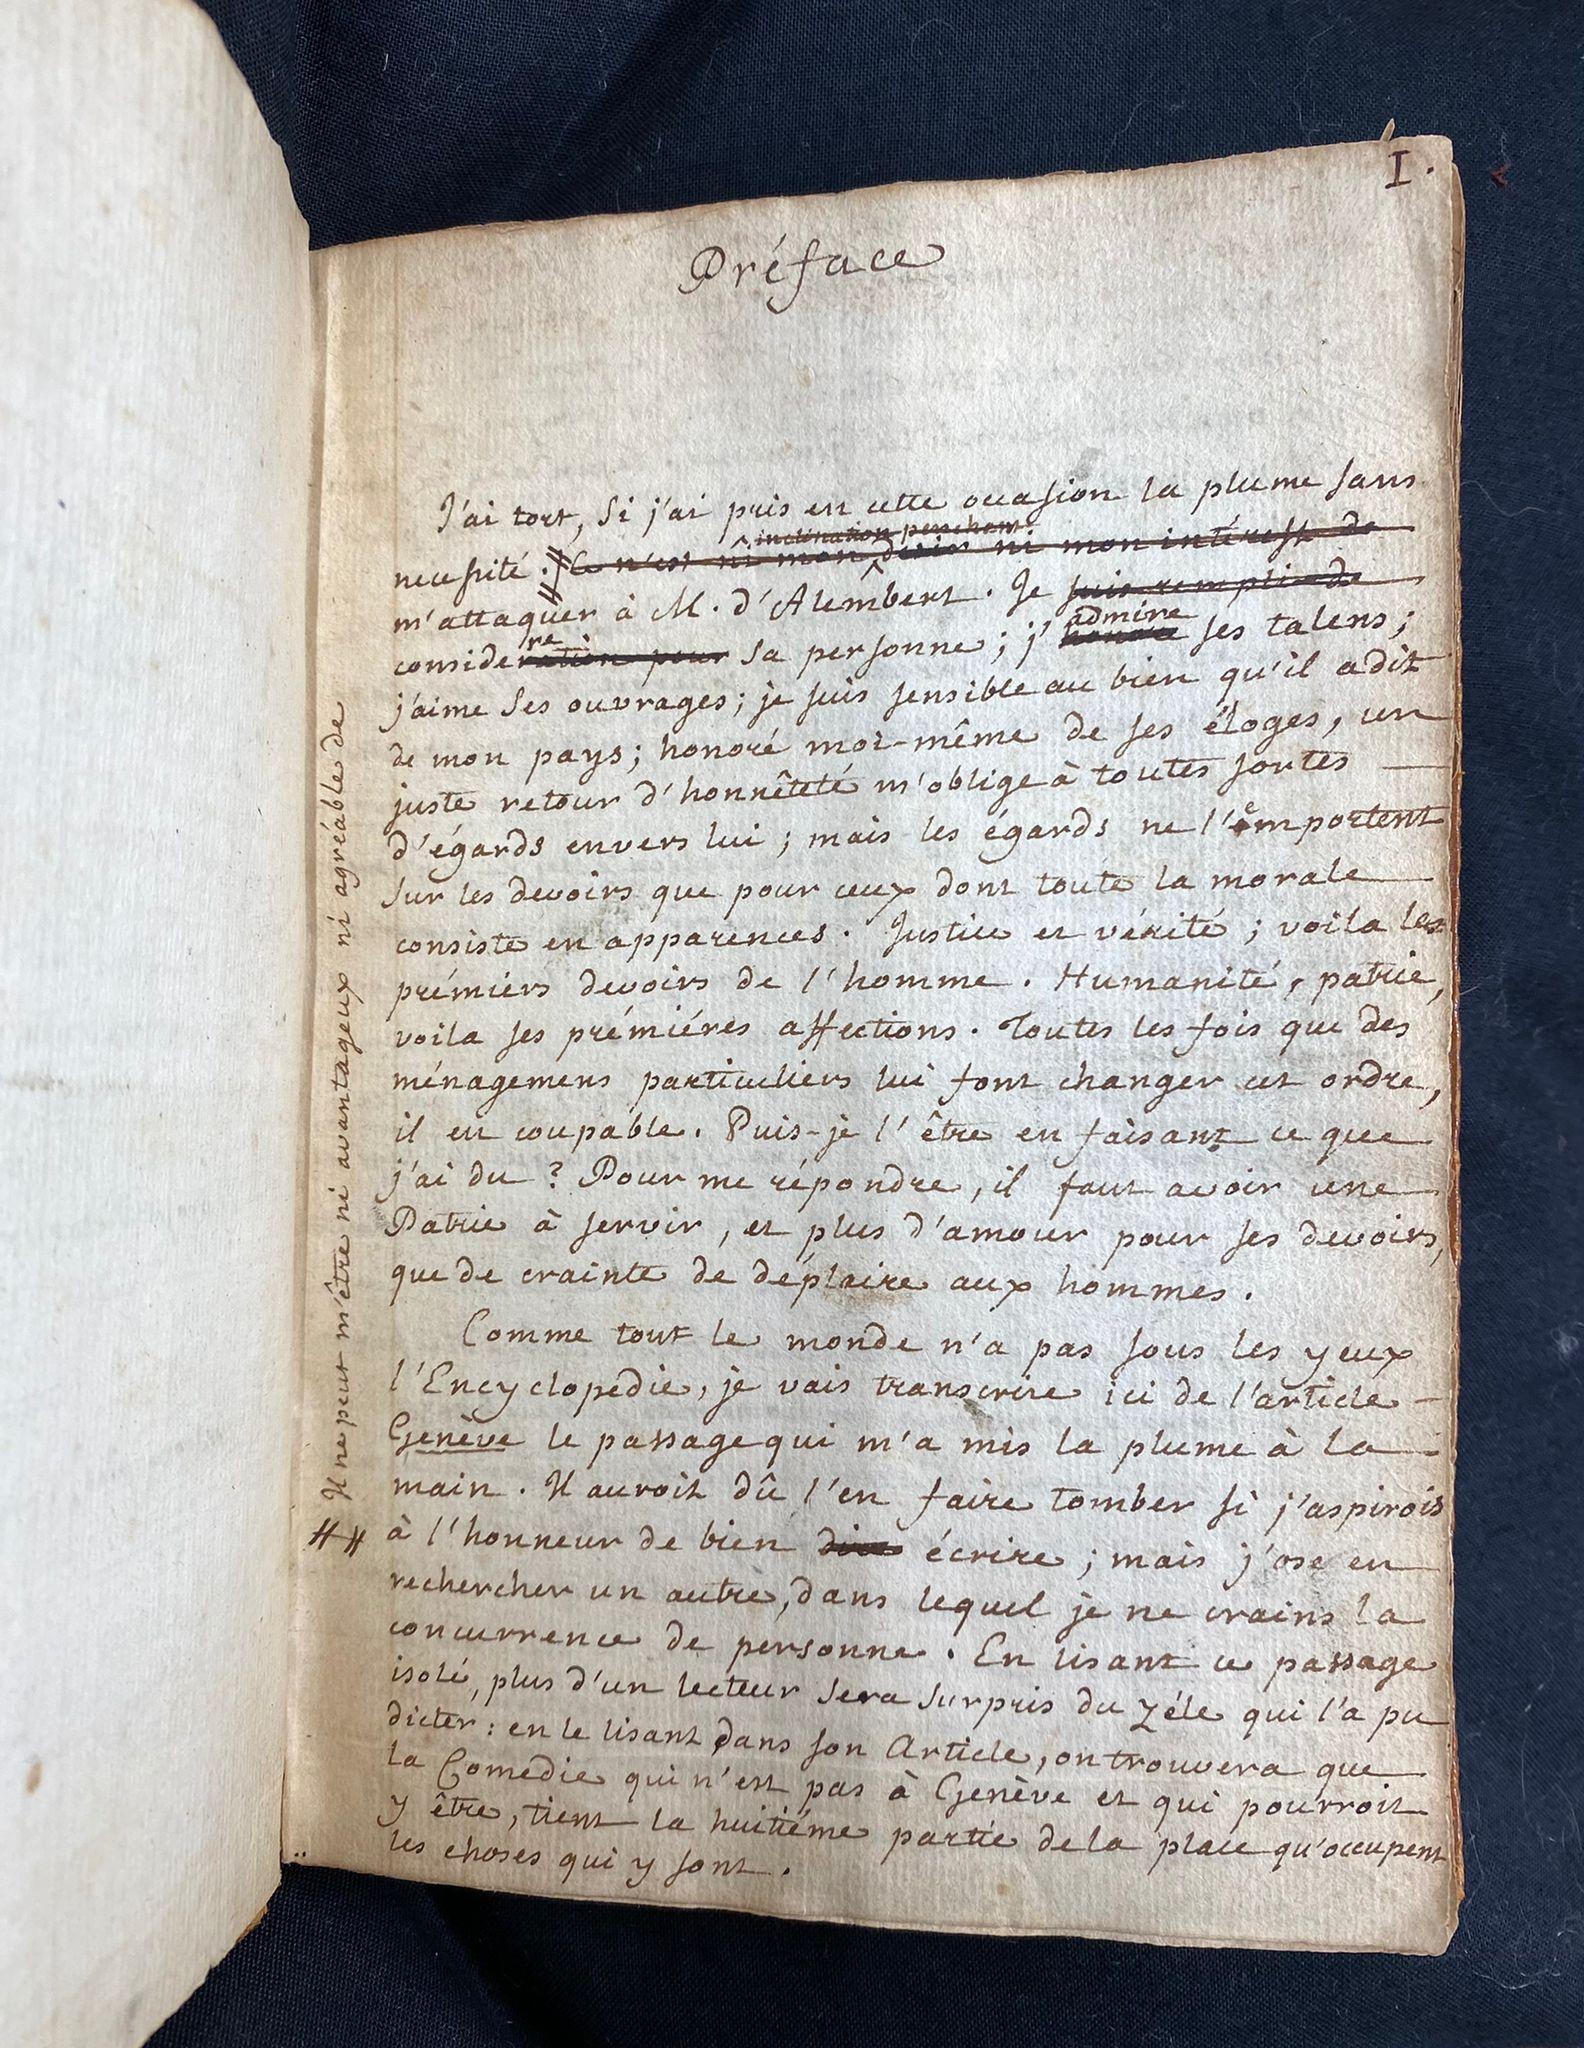 I.
Préface
J'ai tort, si j'ai pris en cette occasion la plume sans
inclination penchant
necessité. Ce n'est ni mon desir ni mon intérest de
m'attaquer à M. d'Alembert. Je suis rempli de
re admire
consideration pour sa personne; j'honore ses talens;
j'aime ses ouvrages; je suis sensible au bien qu'il a dit
de mon pays; honoré moi-même de ses éloges, un
juste retour d'honnêteté m'oblige à toutes sortes
d'égards envers lui; mais les égards ne l'emportent
sur les devoirs que pour ceux dont toute la morale
consiste en apparences. Justice et vérité; voila les
prémiers devoirs de l'homme. Humanité, patrie,
voila ses prémiéres affections. Toutes les fois que des
ménagemens particuliers lui font changer cet ordre,
il est coupable. Puis-je l'être en faisant ce que
j'ai du? Pour me répondre, il faut avoir une
Patrie à servir, et plus d'amour pour ses devoirs,
que de crainte de déplaire aux hommes.
Comme tout le monde n'a pas sous les yeux
l'Encyclopedie, je vais transcrire ici de l'article
Genève le passage qui m'a mis la plume à la
main. Il auroit dû l'en faire tomber si j'aspirois
à l'honneur de bien dire écrire; mais j'ose en
rechercher un autre, dans lequel je ne crains la
concurrence de personne. En lisant ce passage
isolé, plus d'un lecteur sera surpris du zéle qui l'a pu
dicter: en le lisant dans son Article, on trouvera que
la Comedie qui n'est pas à Genève et qui pourroit
y être, tient la huitiéme partie de la place qu'occupent
les choses qui y sont.
Il ne peut m'être ni avantageux ni agréable de